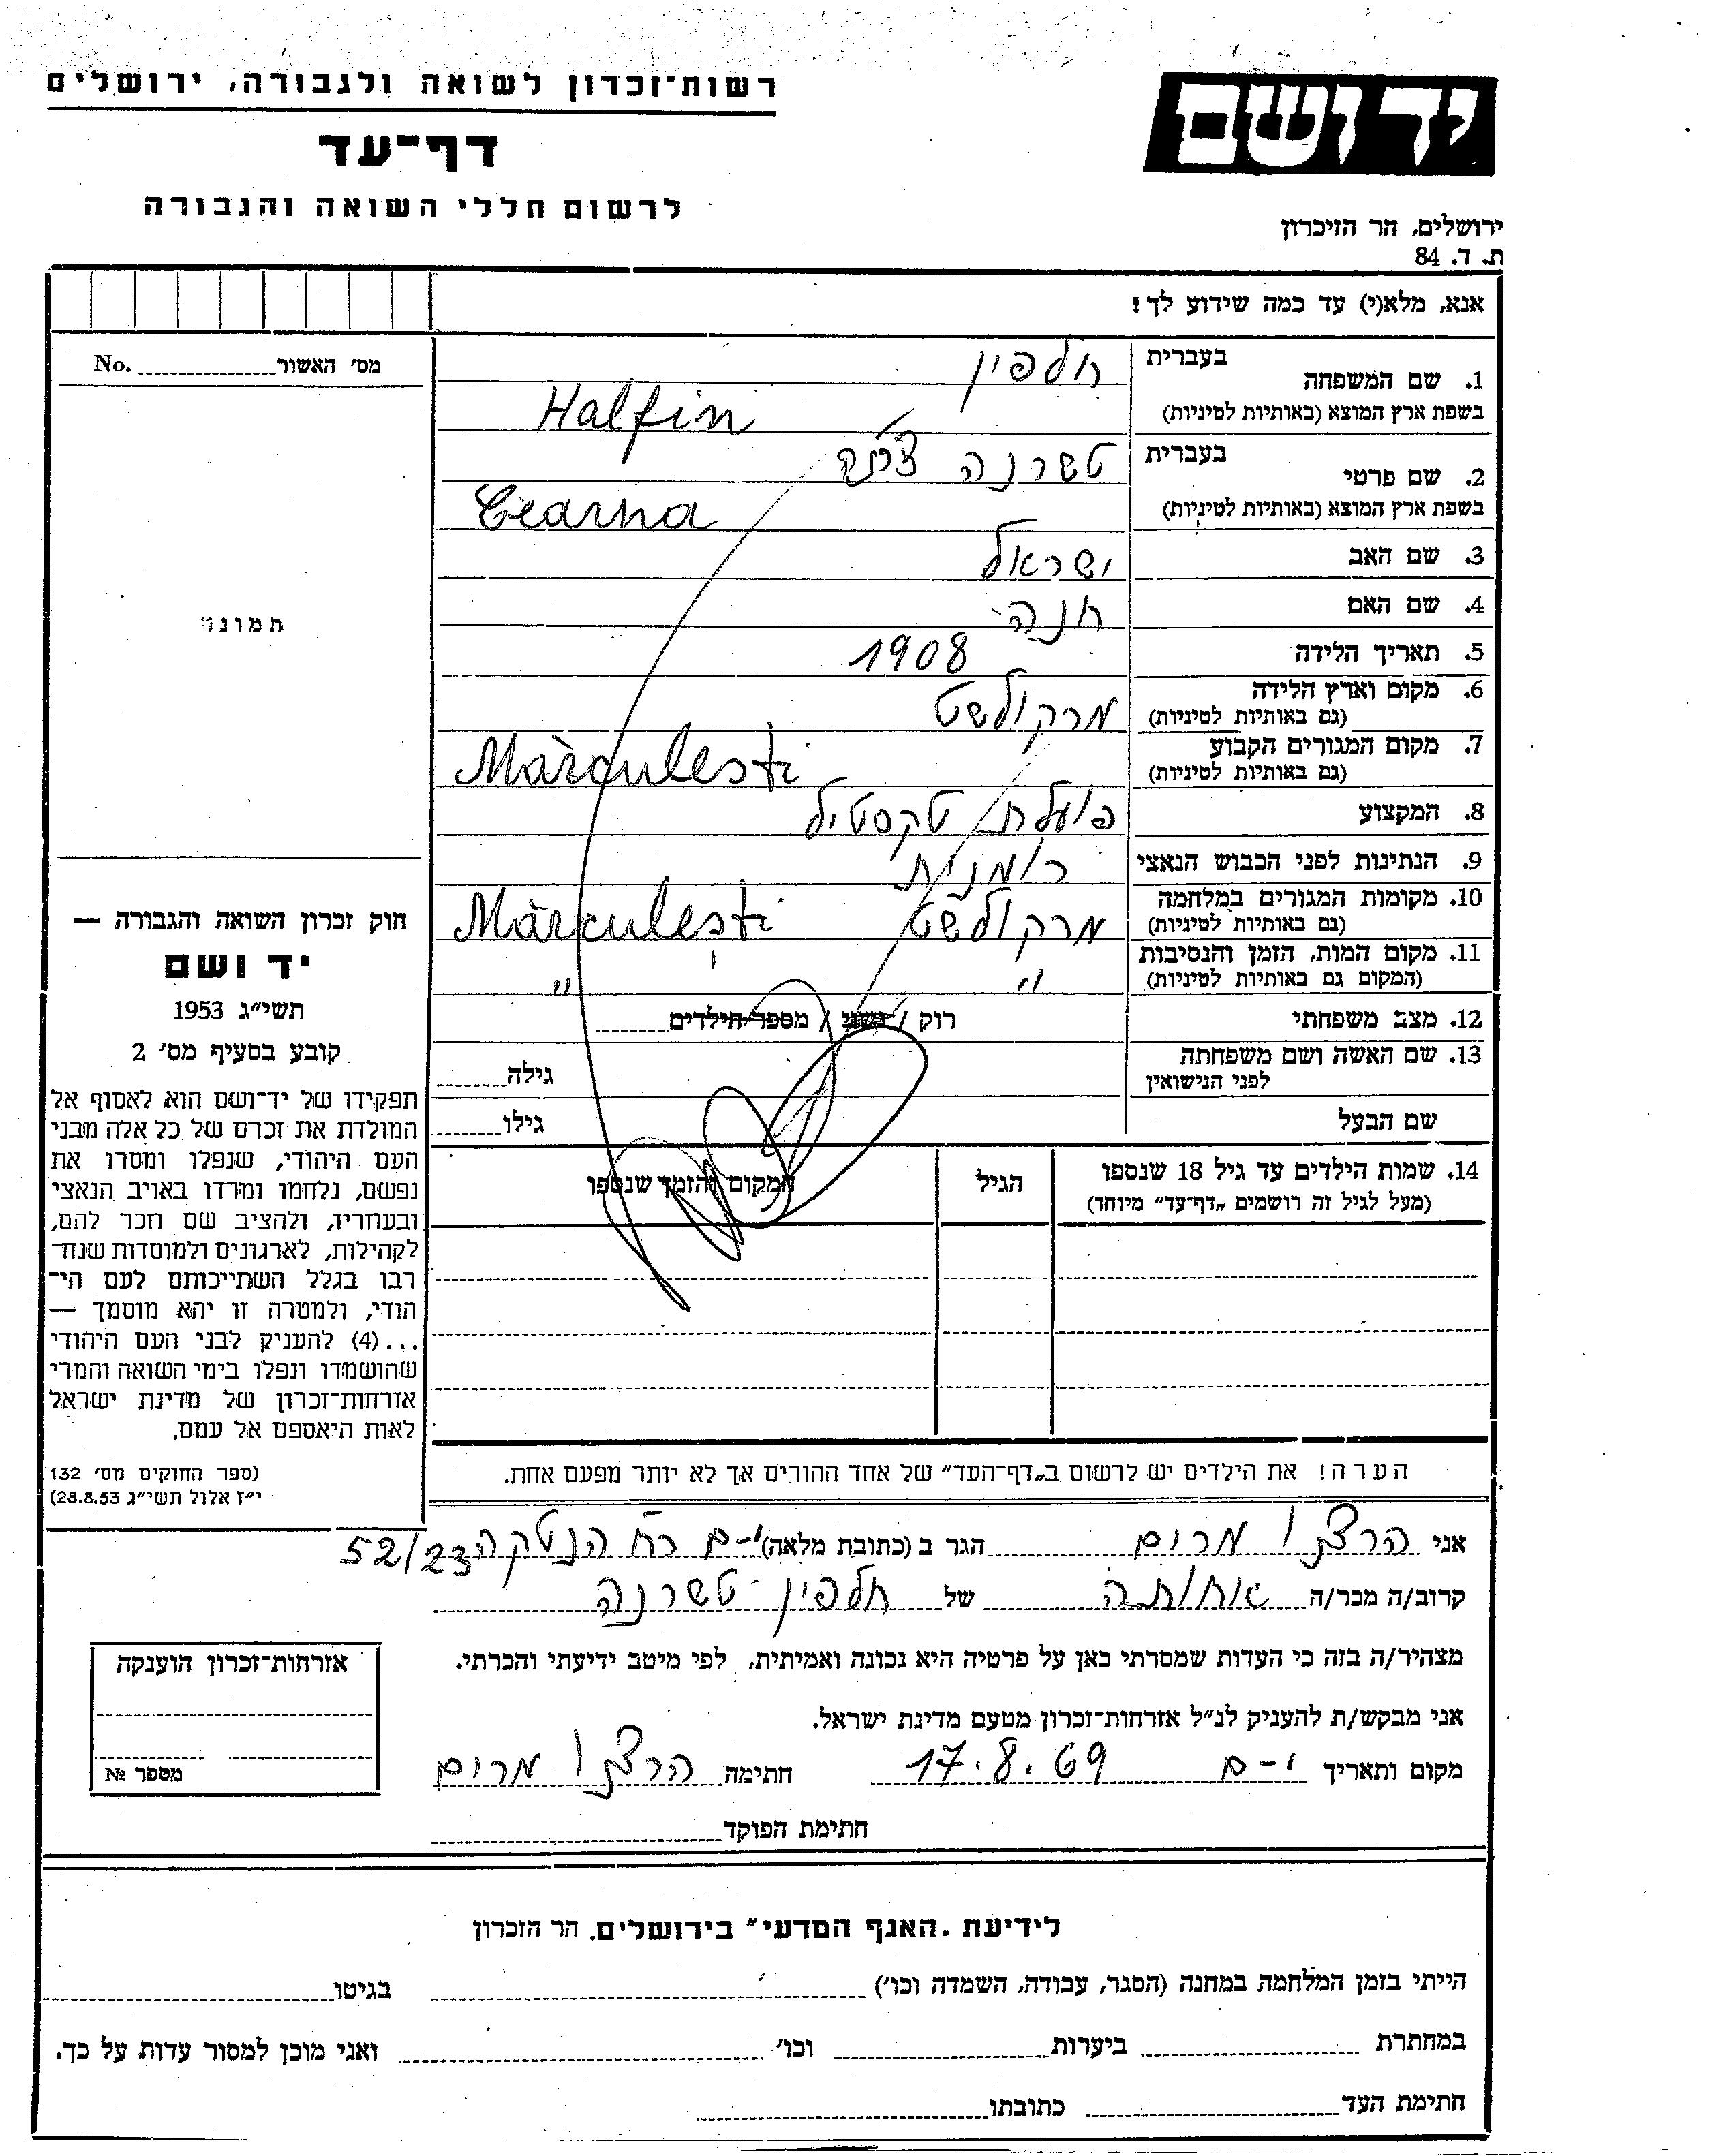 רשות-זכרון לשואה ולגבורה, ירושלים
דף-עד
לרשום חללי השואה והגבורה
יד ושם
ירושלים, הר הזיכרון
ת. ד. 84
אנא, מלא(י) עד כמה שידוע לך!
מס׳ האשור No.
תמונה
1. שם המשפחה בעברית חלפין
בשפת ארץ המוצא (באותיות לטיניות) Halfin
2. שם פרטי בעברית טשרנה
בשפת ארץ המוצא (באותיות לטיניות) Cearna
3. שם האב ישראל
4. שם האם חנה
5. תאריך הלידה 1908
6. מקום וארץ הלידה מרקולשט
(גם באותיות לטיניות)
7. מקום המגורים הקבוע Mărculesti
(גם באותיות לטיניות)
8. המקצוע פועלת טקסטיל
9. הנתינות לפני הכבוש הנאצי רומנית
10. מקומות המגורים במלחמה מרקולשט Mărculeşti
(גם באותיות לטיניות)
11. מקום המות, הזמן והנסיבות " "
(המקום גם באותיות לטיניות)
12. מצב משפחתי רוק / נשוי / מספר הילדים
13. שם האשה ושם משפחתה גילה
לפני הנישואין
שם הבעל גילו
14. שמות הילדים עד גיל 18 שנספו הגיל המקום והזמן שנספו
(מעל לגיל זה רושמים „דף-עד" מיוחד)
חוק זכרון השואה והגבורה —
יד ושם
תשי״ג 1953
קובע בסעיף מס׳ 2
תפקידו של יד-ושם הוא לאסוף אל
המולדת את זכרם של כל אלה מבני
העם היהודי, שנפלו ומסרו את
נפשם, נלחמו ומרדו באויב הנאצי
ובעוזריו, ולהציב שם וזכר להם,
לקהילות, לארגונים ולמוסדות שנח-
רבו בגלל השתייכותם לעם הי-
הודי, ולמטרה זו יהא מוסמך —
...(4) להעניק לבני העם היהודי
שהושמדו ונפלו בימי השואה והמרי
אזרחות-זכרון של מדינת ישראל
לאות היאספם אל עמם.
(ספר החוקים מס׳ 132
י״ז אלול תשי״ג 28.8.53)
הערה! את הילדים יש לרשום ב„דף-העד" של אחד ההורים אך לא יותר מפעם אחת.
אני מרים הגר ב (כתובת מלאה) י-ם רח הנטקה 52/23
קרוב/ה מכר/ה אחותה של חלפין טשרנה
מצהיר/ה בזה כי העדות שמסרתי כאן על פרטיה היא נכונה ואמיתית, לפי מיטב ידיעתי והכרתי.
אני מבקש/ת להעניק לנ״ל אזרחות-זכרון מטעם מדינת ישראל.
מקום ותאריך י-ם 17.8.69 חתימה מרים
חתימת הפוקד
אזרחות-זכרון הוענקה
מספר №
לידיעת „האגף המדעי" בירושלים. הר הזכרון
הייתי בזמן המלחמה במחנה (הסגר, עבודה, השמדה וכו׳) בגיטו
במחתרת ביערות וכו׳ ואני מוכן למסור עדות על כך.
חתימת העד כתובתו